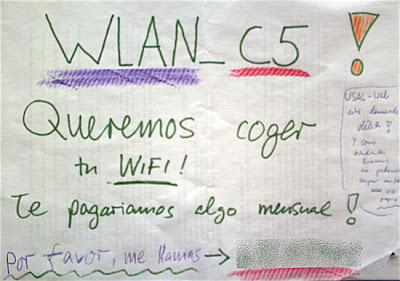 WLAN_C5 !
Queremos coger
tu WIFI!
Te pagaríamos algo mensual!
Por favor, me llamas →
USAL-Wifi
está demasiado
débil!
Y como
estudiantes
no podemos